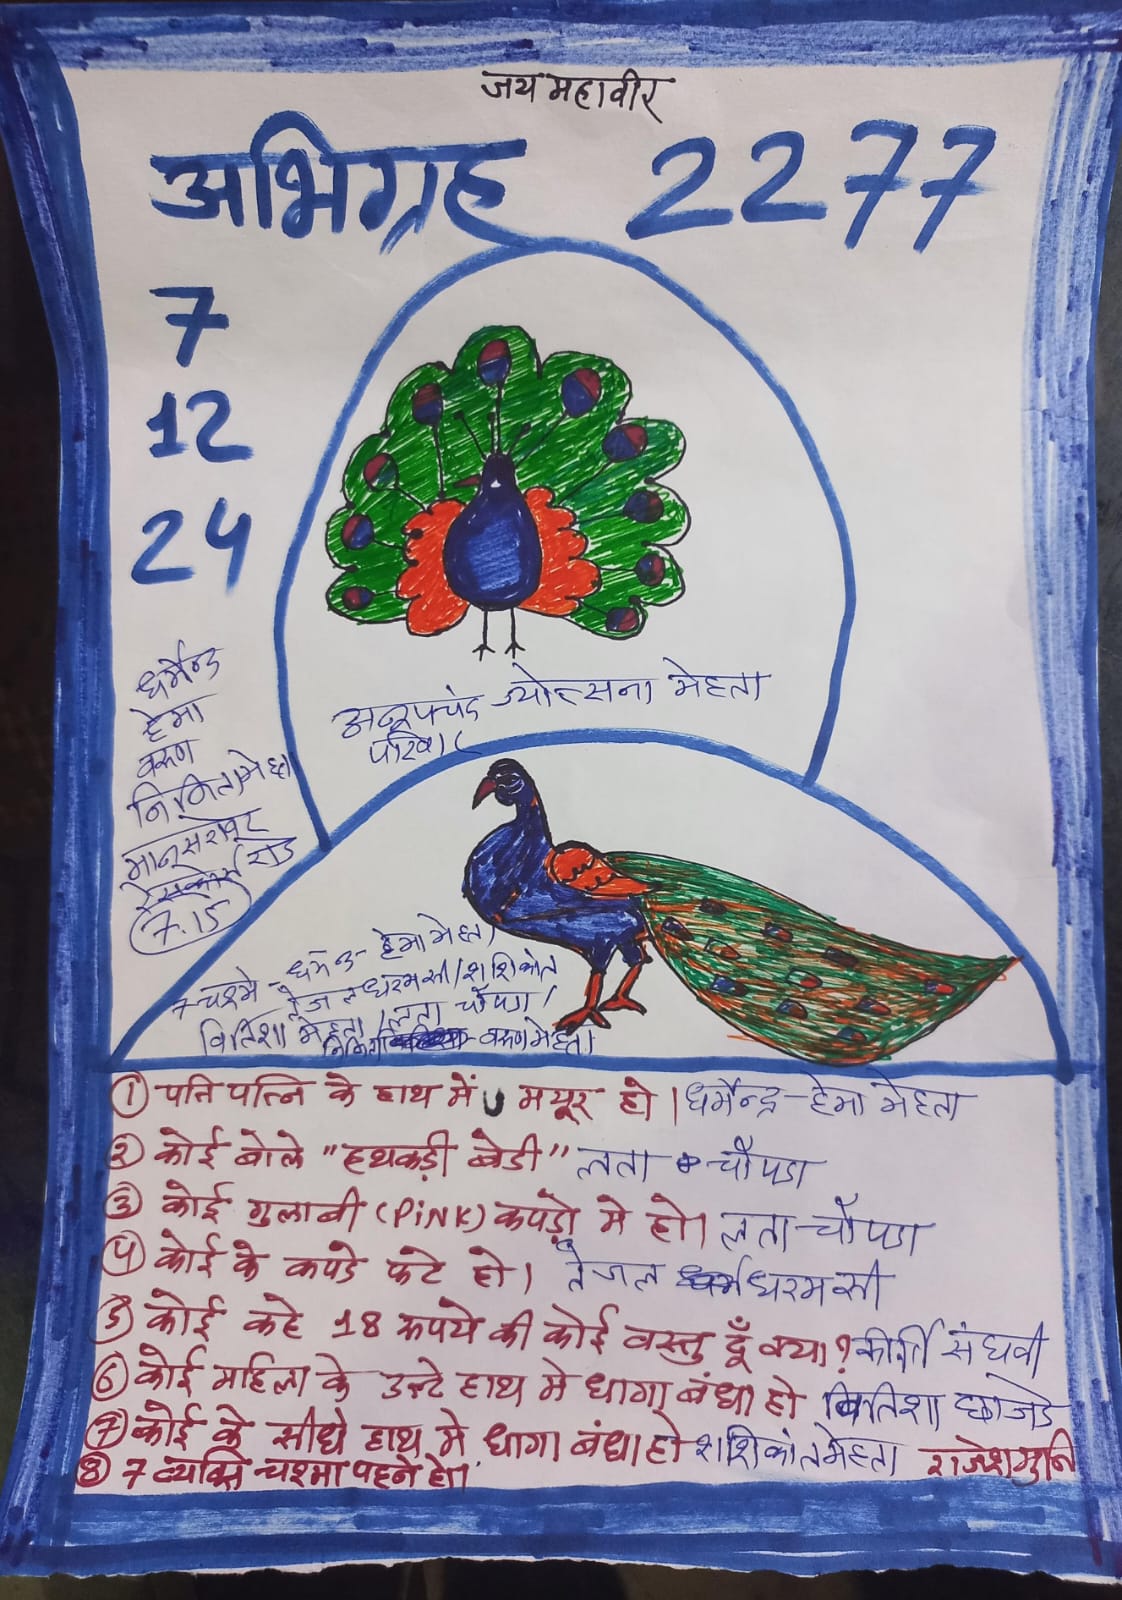 जय महावीर
अभिग्रह 2277
7
12
24
धर्मेन्द्र
हेमा
वरुण
निमिता मेहता
मानसरोवर
रेसकोर्स रोड
7.15
ज्योत्सना मेहता
परिवार
7 चश्मे - धर्मेन्द्र - हेमा मेहता
तेजल धरमसी / शशिकांत
वितिशा मेहता / लता चौपडा /
वरुण मेहता
① पति पत्नि के हाथ में मयूर हो । धर्मेन्द्र - हेमा मेहता
② कोई बोले "हथकड़ी बेडी" लता चौपडा
③ कोई गुलाबी (PiNK) कपड़ो मे हो। लता चौपडा
④ कोई के कपडे फटे हो । तेजल धरमसी
⑤ कोई कहे 18 रूपये की कोई वस्तु दूँ क्या ? कीर्ति संघवी
⑥ कोई महिला के उल्टे हाथ मे धागा बंधा हो वितिशा छाजेड
⑦ कोई के सीधे हाथ मे धागा बंधा हो शशिकांत मेहता राजेशमुनि
⑧ 7 व्यक्ति चश्मा पहने हो।